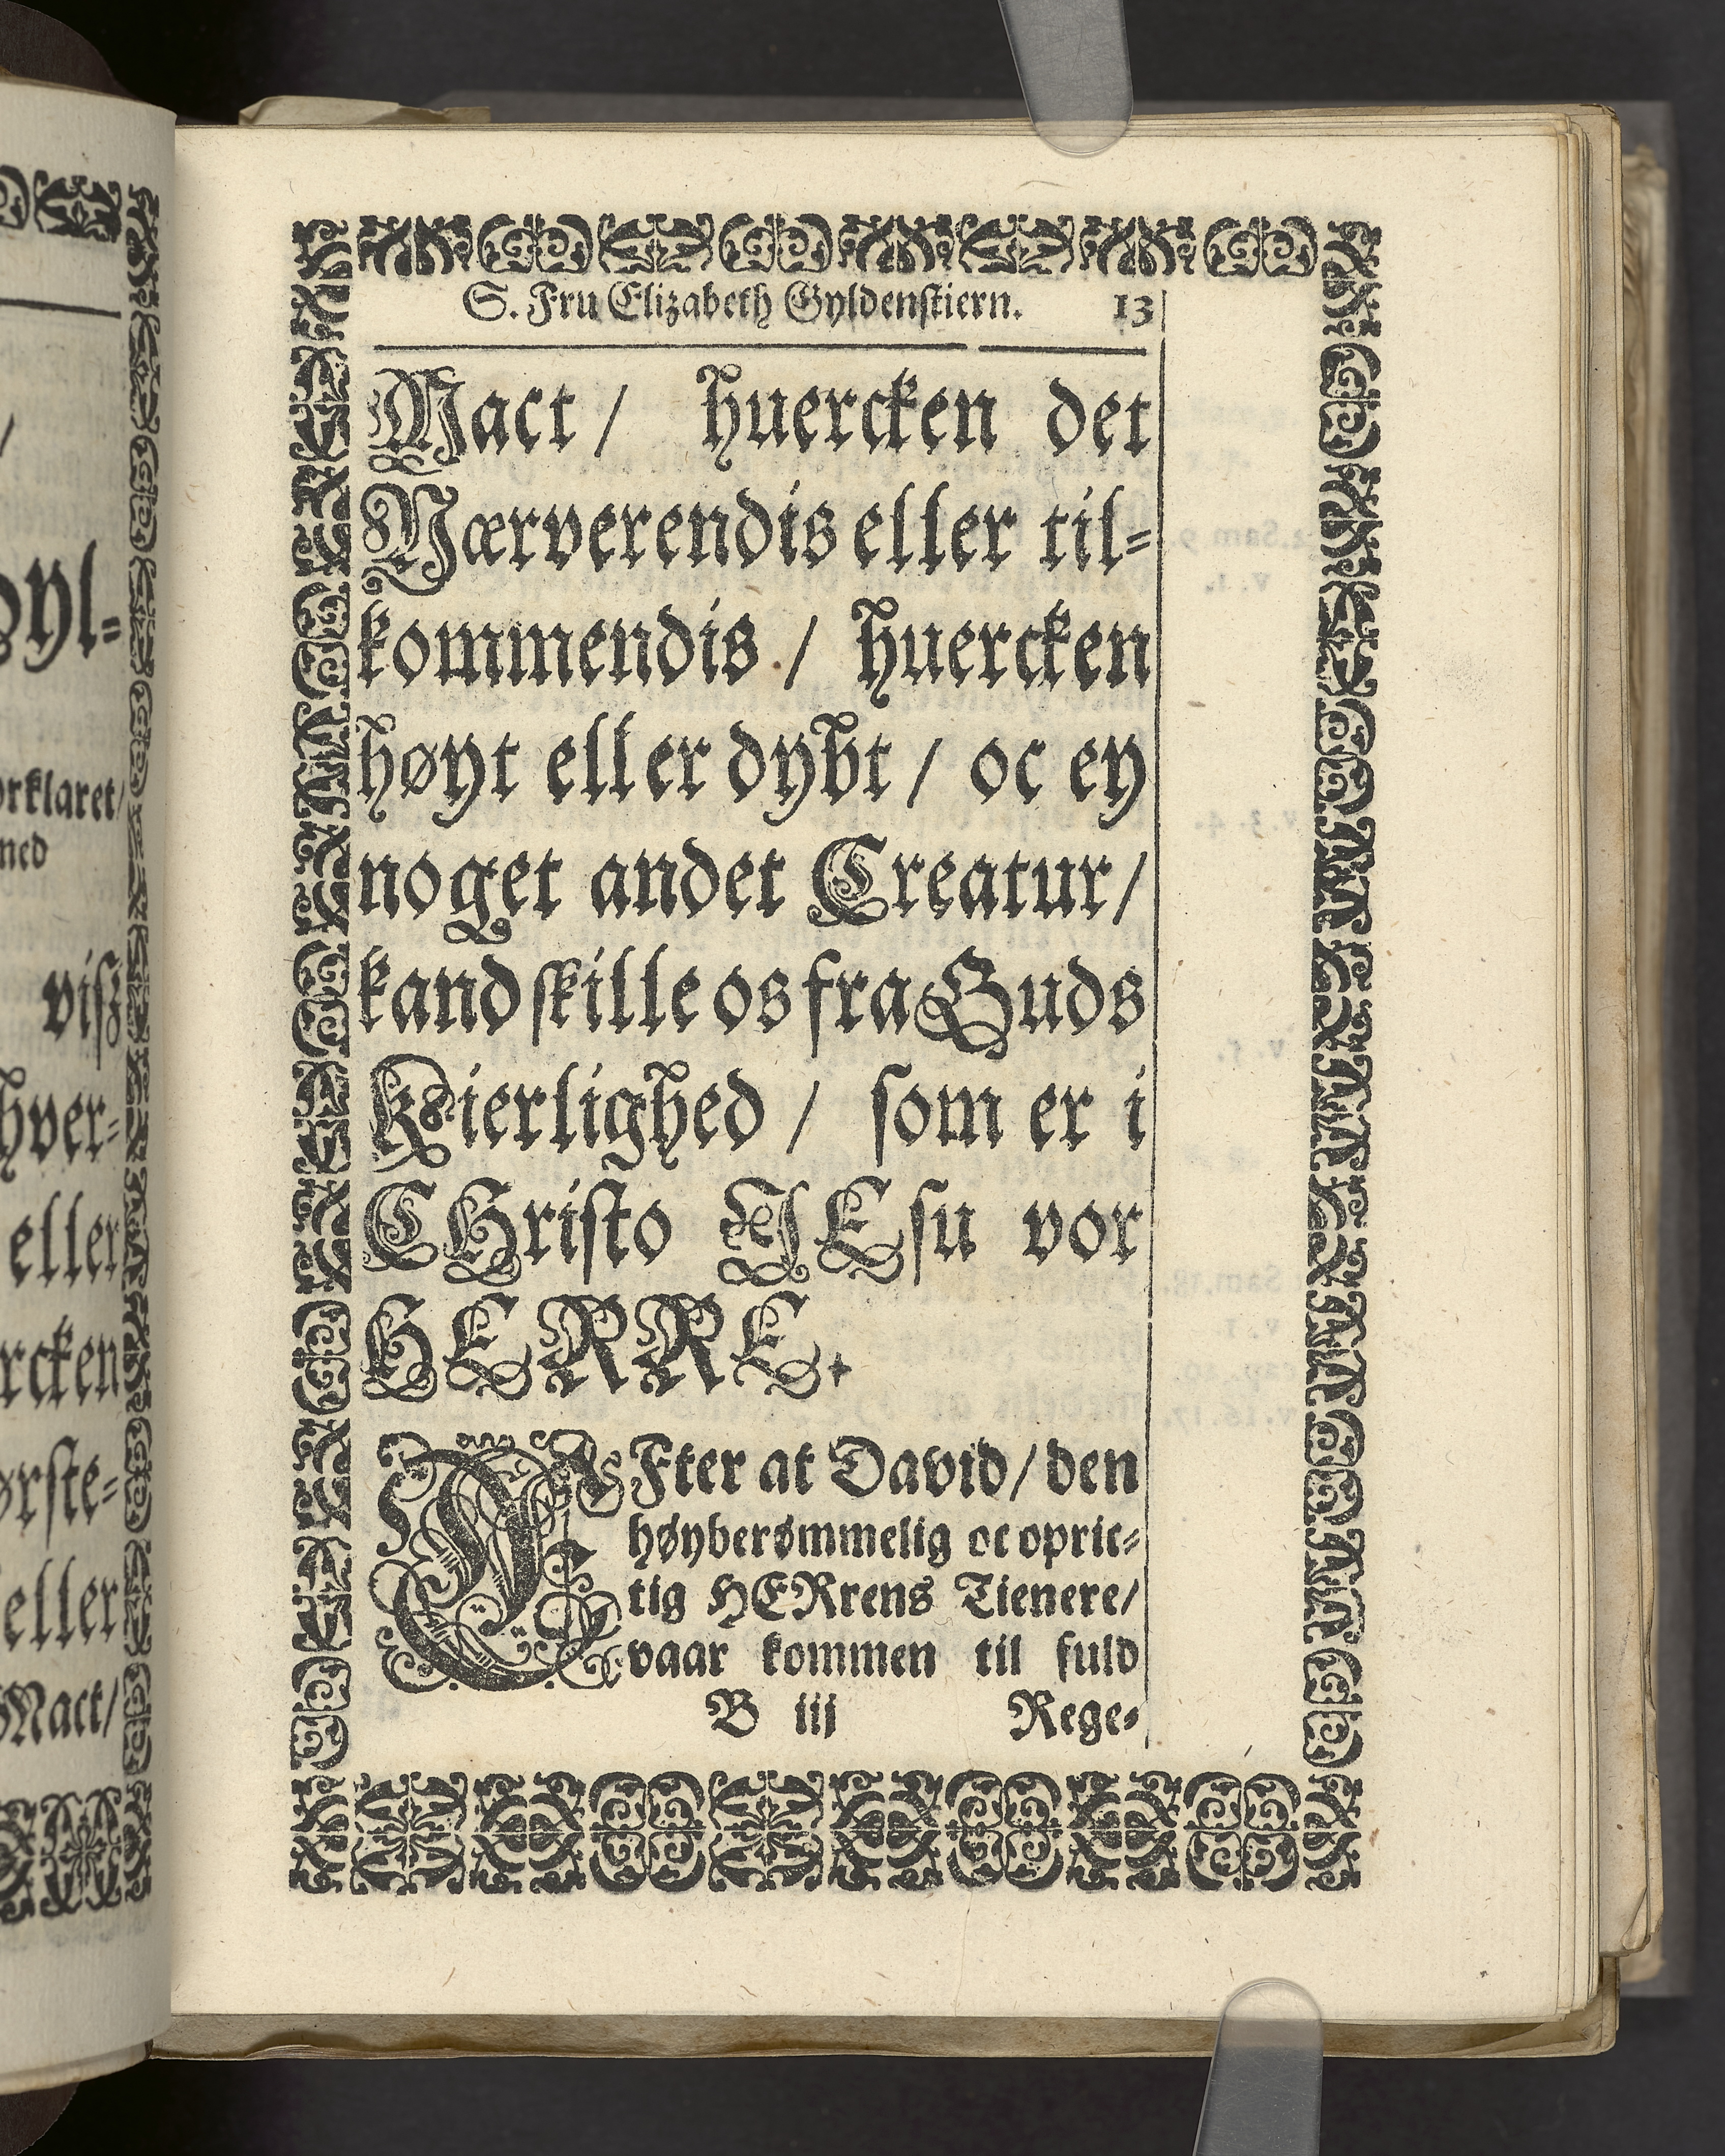 yl-
orklaret/
med
viß
hver-
eller
rcken
ørste-
eller
Mact/
S. Fru Elizabeth Gyldenstiern. 13
Mact / huercken det
Nærverendis eller til-
kommendis / huercken
høyt eller dybt / oc ey
noget andet Creatur/
kand skille os fra Guds
Kierlighed / som er i
CHristo JEsu vor
HERRE.
EFter at David/ den
høyberømmelig oc opric-
tig HERrens Tienere/
vaar kommen til fuld
B iij Rege-